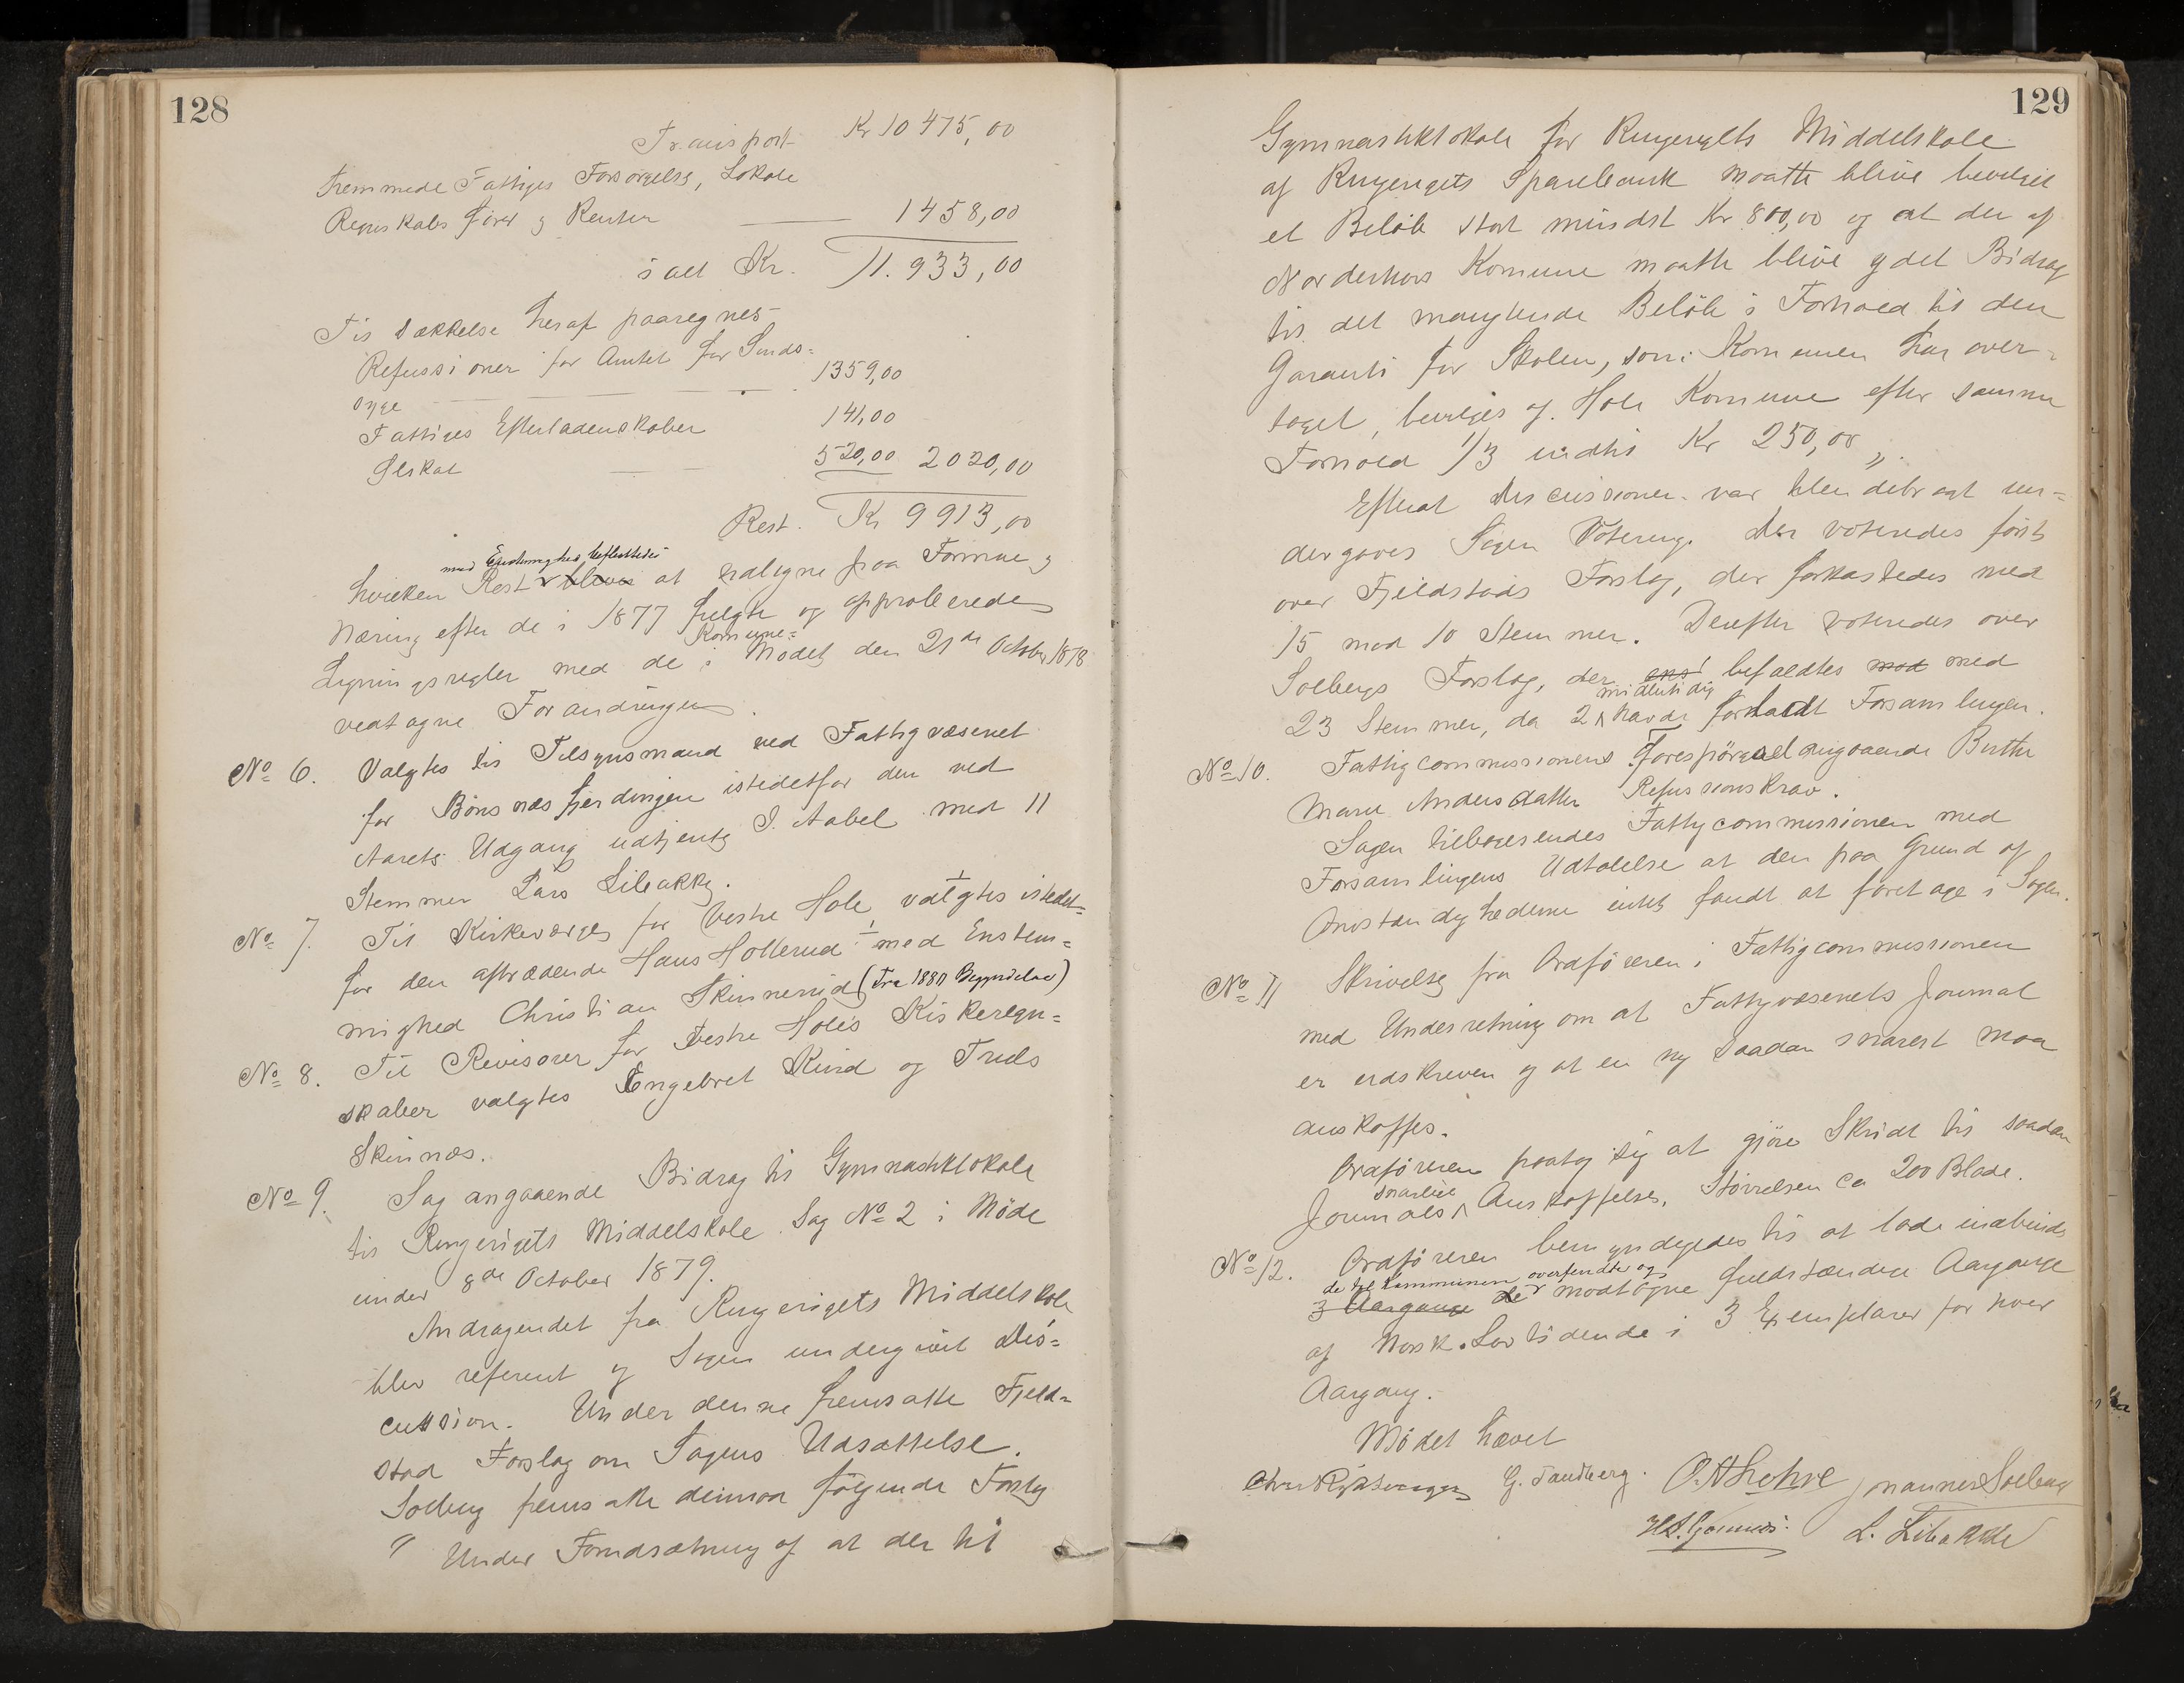 128
Transport Kr 10 475,00
fremmede Fattiges Forsørgelse, Lokale
Regnskabsfører og Renter 1458,00
i alt Kr. 11.933,00
Til Dækkelse heraf paaregnes
Refussioner for Amtet for Sinds=
syge 1359,00
Fattiges Efterladenskaber 141,00
Ølskat 520,00 2020,00
Rest. Kr 9 913,00
med Enstemmighed besluttedes
hvilken Rest blives at udligne paa Formue og
Næring efter de i 1877 fulgte og approberede
Komune=
Ligningsregler med de i Mødet den 21de October 1878
vedtagne Forandringer.
No 6. Valgtes til Tilsynsmand ved Fattigvæsenet
for Bönsnæs fjerdingen istedetfor den ved
Aarets Udgang udtjente J. Aabel med 11
Stemmer Lars Libakke.
No 7. Til Kirkeværge for Vestre Hole valgtes istedet=
for den aftrædende Hans Hollerud med Enstem=
mighed Christian Skinnerud (fra 1880 Begyndelse)
No 8. Til Revisorer for Vestre Holes Kirkeregn=
skaber valgtes Engebret Rud og Truls
Skinnæs.
No 9. Sag angaaende Bidrag til Gymnastiklokale
til Ringeriget Middelskole Sag No 2 i Møde
under 8de October 1879.
Andragendet fra Ringerigets Middelskole
blev referert og Sagen undergivet Dis=
cussion. Under denne fremsatte Fjeld=
stad Forslag om Sagens Udsættelse.
Solberg fremsatte derimod følgende Forslag
" Under Forudsætning af at der til
129
Gymnastiklokale for Ringerigets Middelskole
af Ringerigets Sparebank maatte blive bevilget
et Beløb stort mindst Kr 800,00 og at der af
Norderhovs Komune maatte blive ydet Bidrag
til det manglende Beløb i Forhold til den
Garanti for Skolen, som Kommunen har over=
taget, bevilges af Hole Komune efter samme
Forhold 1/3 indtil Kr 250,00 „.
Efterat Discussionen var tilendebragt un=
dergaves Sagen Votering. Der voteredes først
over Fjeldstads Forslag, der forkastedes med
15 mod 10 Stemmer. Derefter voteredes over
Solbergs Forslag, der ens befaldtes mod med
midlertidig
23 Stemmer, da 2 havde forladt Forsamlingen.
No 10. Fattigcommissionens Forespørgsel angaaende Berthe
Marie Andersdatter Refussionskrav.
Sagen tilbagesendes Fattigcommissionen med
Forsamlingens Udtalelse at den paa Grund af
Omstændighederne intet fandt at foretage i Sagen.
No 11 Skrivelse fra Ordføreren i Fattigcommissionen
med Underretning om at Fattigvæsenets Journal
er udskreven og at en ny saadan snarest maa
anskaffes.
Ordføreren paatog sig at gjøre Skridt til saadan
snarlige
Journals Anskaffelse, Størrelsen ca 200 Blade.
No 12. Ordføreren bemyndigedes til at lade indbinde
de til Kommunen oversendte og
3 Aargange de modtagne fuldstændige Aargange
af Norsk Lovtidende i 3 Exemplarer for hver
Aargang.
Mødet hævet
G. Tandberg. Johannes Solberg
L. Libakke